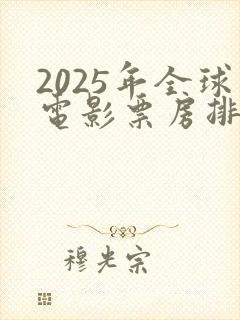 2025年全球
電影票房排
穆光宗